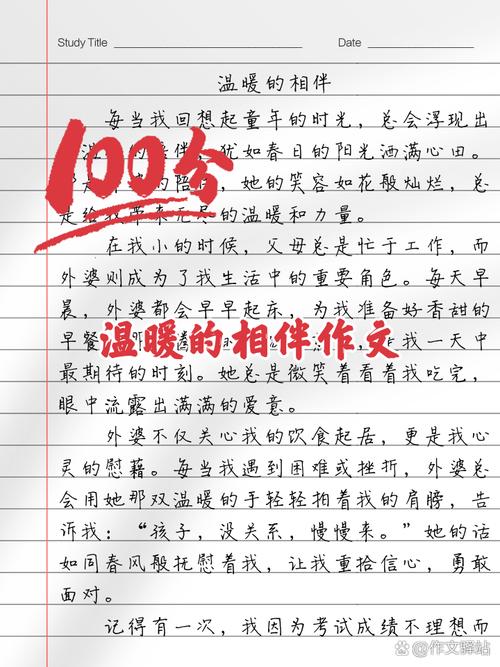 Study Title Date
温暖的相伴
每当我回想起童年的时光，总会浮现出
100分
温 的 伴，犹如春日的阳光洒满心田。
那是 的陪 ，她的笑容如花般灿烂，总
是给我带来无尽的温暖和力量。
在我小的时候，父母总是忙于工作，而
外婆则成为了我生活中的重要角色。每天早
晨，外婆都会早早起床，为我准备好香甜的
早餐 我一天中
温暖的相伴作文
最期待的时刻。她总是微笑着看着我吃完，
眼中流露出满满的爱意。
外婆不仅关心我的饮食起居，更是我心
灵的慰藉。每当我遇到困难或挫折，外婆总
会用她那双温暖的手轻轻拍着我的肩膀，告
诉我：“孩子，没关系，慢慢来。”她的话
如同春风般抚慰着我，让我重拾信心，勇敢
面对。
记得有一次，我因为考试成绩不理想而
@作文驿站